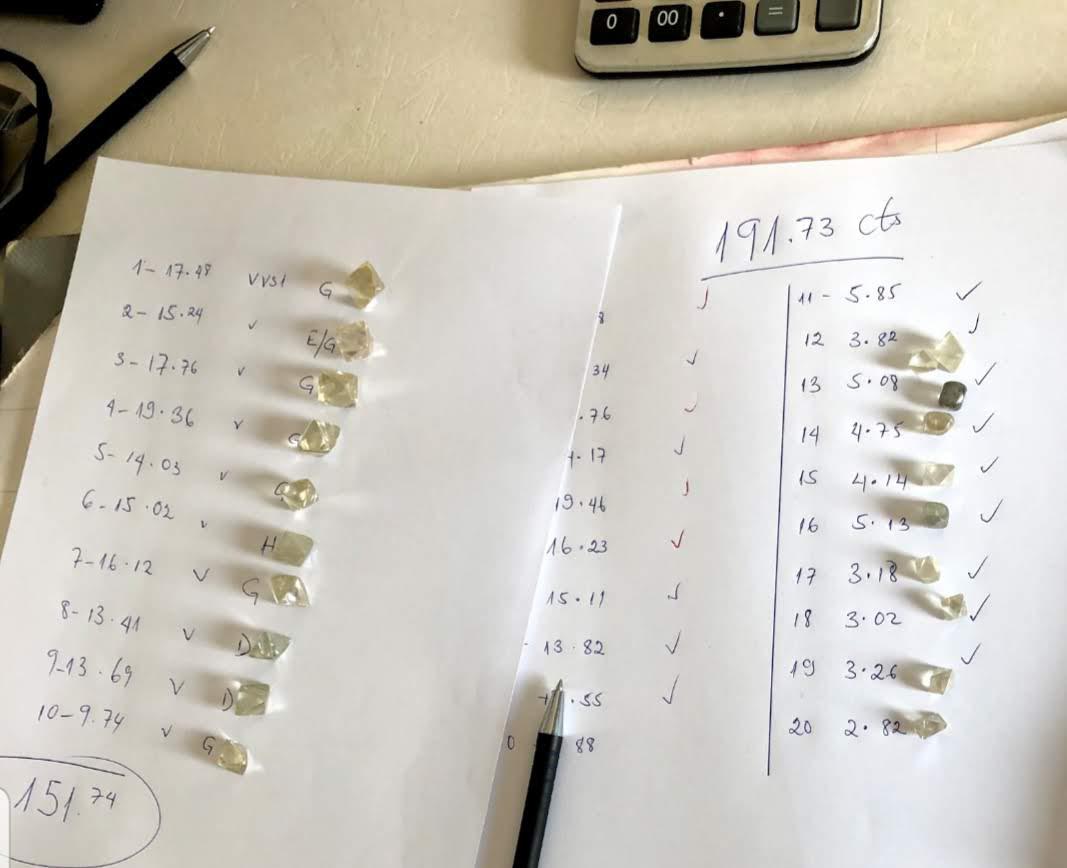 0 00 . =
191.73 cts
1- 17.48 VVS1 G
2- 15.24 v E/G
3- 17.76 v G
4- 19.36 v G
5- 14.03 v G
6- 15.02 v H
7- 16.12 v G
8- 13.41 v D
9- 13.69 v D
10- 9.74 v G
151.74
8 ✓
34 ✓
.76 ✓
.17 ✓
19.46 ✓
16.23 ✓
15.11 ✓
13.82 ✓
.55 ✓
0 88
11 - 5.85 ✓
12 3.82 ✓
13 5.08 ✓
14 4.75 ✓
15 4.14 ✓
16 5.13 ✓
17 3.18 ✓
18 3.02 ✓
19 3.26 ✓
20 2.82